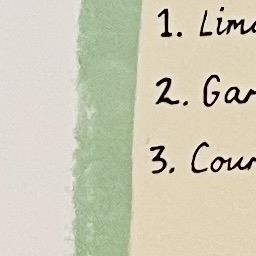 1. Lim
2. Gar
3. Cour